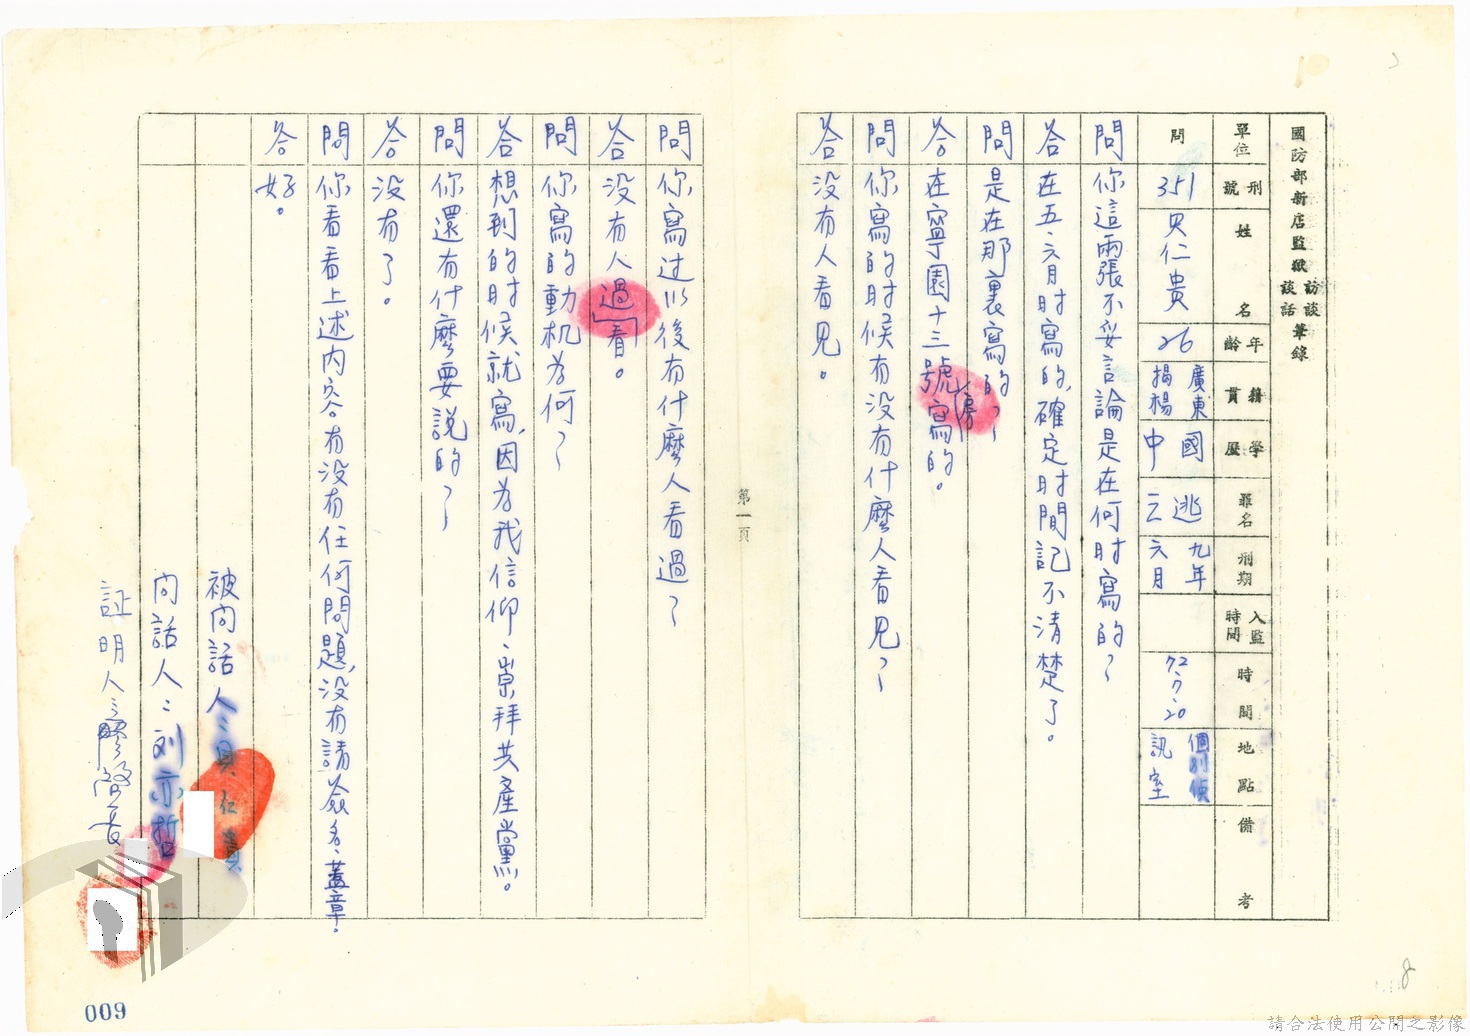 國防部新店監獄 訪談 談話 筆錄
單位 刑號 姓名 年齡 籍貫 學歷 罪名 刑期 入監時間 時間 地點 備考
問 351 貝仁貴 26 廣東揭楊 國中 逃亡 九年六月 72.7.20 個別偵訊室
問 你這兩張不妥言論是在何时寫的？
答 在五、六月时寫的,確定时間記不清楚了。
問 是在那裏寫的？
答 在寧園十三號房寫的。
問 你寫的时候有没有什麼人看見？
答 没有人看見。
第一頁
問 你寫过以後有什麼人看過？
答 没有人看過。
問 你寫的動机为何？
答 想到的时候就寫,因为我信仰、崇拜共產黨。
問 你還有什麼要說的？
答 没有了。
問 你看看上述内容有没有任何問題,没有請簽名、蓋章。
答 好。
被问話人：貝仁貴
问話人：刘亦哲
証明人：
009
8
請合法使用公開之影像